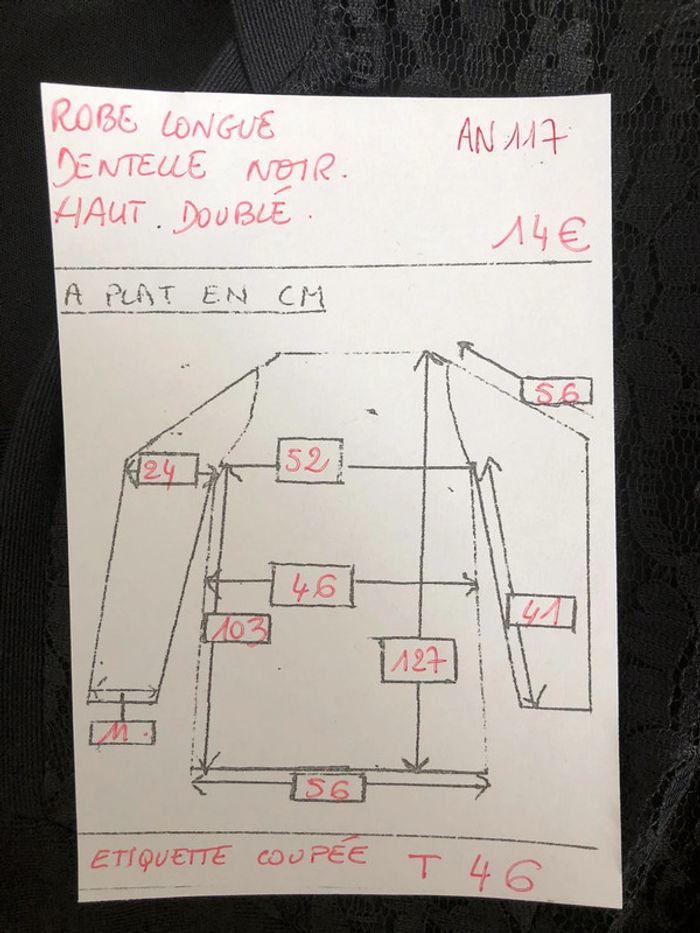 ROBE LONGUE
DENTELLE NOIR.
HAUT. DOUBLÉ.
AN 117
14€
A PLAT EN CM
56
24
52
46
103
41
127
11.
56
ETIQUETTE COUPÉE T 46